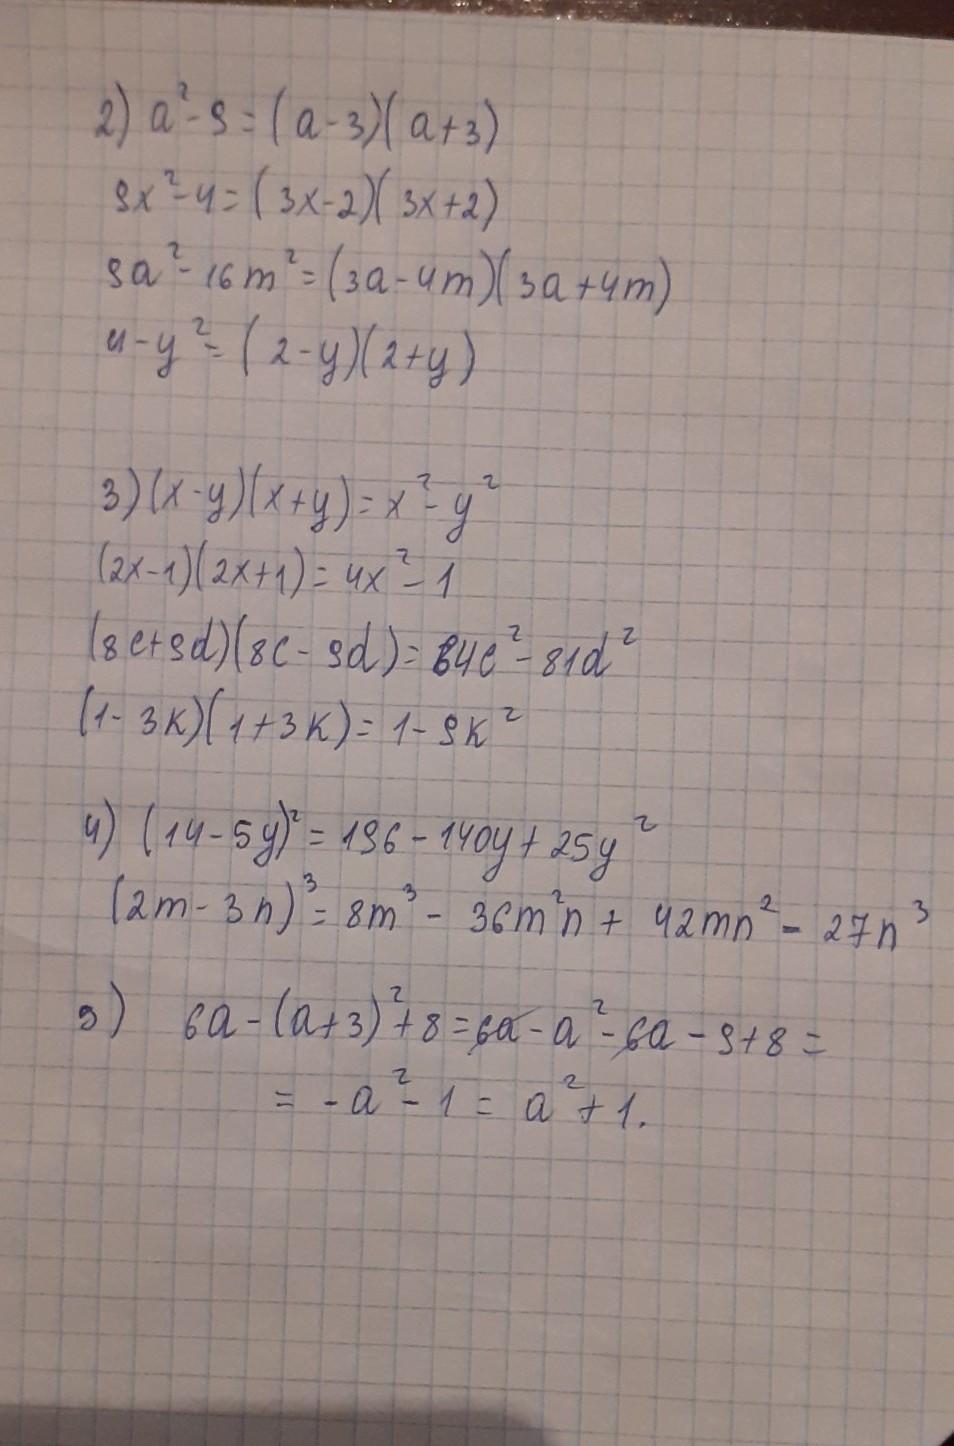 2) a² - 9 = (a - 3)(a + 3)
9x² - 4 = (3x - 2)(3x + 2)
9a² - 16m² = (3a - 4m)(3a + 4m)
4 - y² = (2 - y)(2 + y)
3) (x - y)(x + y) = x² - y²
(2x - 1)(2x + 1) = 4x² - 1
(8c + 9d)(8c - 9d) = 64c² - 81d²
(1 - 3k)(1 + 3k) = 1 - 9k²
4) (14 - 5y)² = 196 - 140y + 25y²
(2m - 3n)³ = 8m³ - 36m²n + 42mn² - 27n³
5) 6a - (a + 3)² + 8 = 6a - a² - 6a - 9 + 8 =
= -a² - 1 = a² + 1.